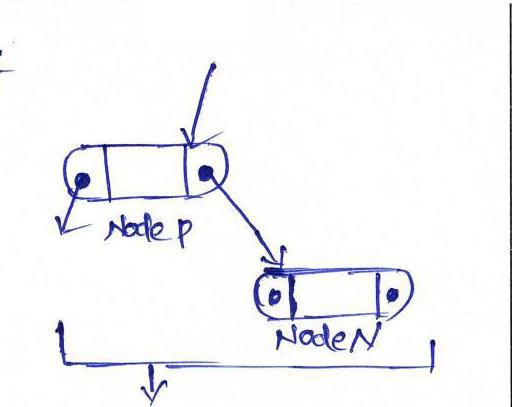 Node P
Node N